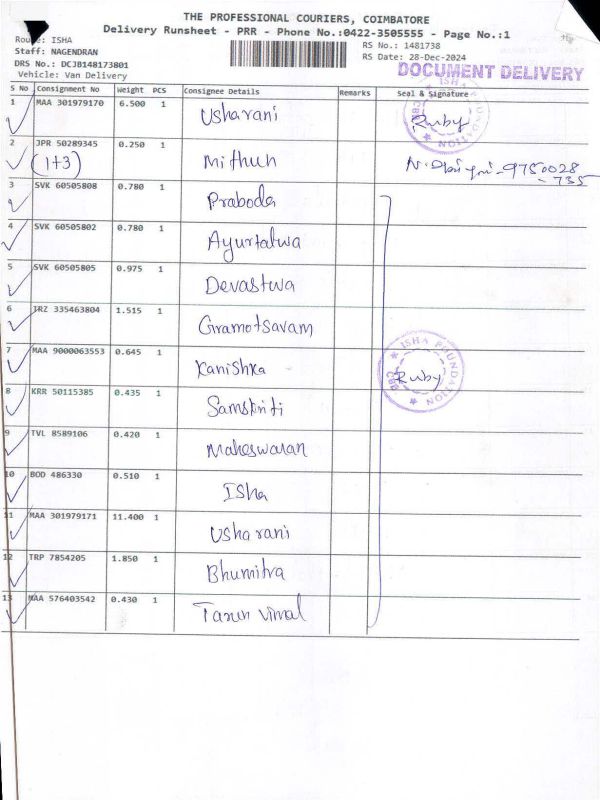 THE PROFESSIONAL COURIERS, COIMBATORE
Delivery Runsheet - PRR - Phone No.:0422-3505555 - Page No.:1
Route: ISHA
RS No.: 1481738
Staff: NAGENDRAN
RS Date: 28-Dec-2024
DRS No.: DCJB148173801
DOCUMENT DELIVERY
Vehicle: Van Delivery
S No Consignment No Weight PCS Consignee Details Remarks Seal & Signature
1 MAA 301979170 6.500 1 Usharani Ruby
2 JPR 50289345 0.250 1 Mithun 9750028
(1+3) -735
3 SVK 60505808 0.780 1 Praboda
4 SVK 60505802 0.780 1 Ayurtatwa
5 SVK 60505805 0.975 1 Devastwa
6 TRZ 335463804 1.515 1 Gramotsavam
7 MAA 9000063553 0.645 1 Kanishka ISHA FOUNDATION CBE Ruby
8 KRR 50115385 0.435 1 Samskriti
9 TVL 8589106 0.420 1 Maheswaran
10 BOD 486330 0.510 1 Isha
11 MAA 301979171 11.400 1 Usharani
12 TRP 7854205 1.850 1 Bhumitra
13 MAA 576403542 0.430 1 Tarun Vimal